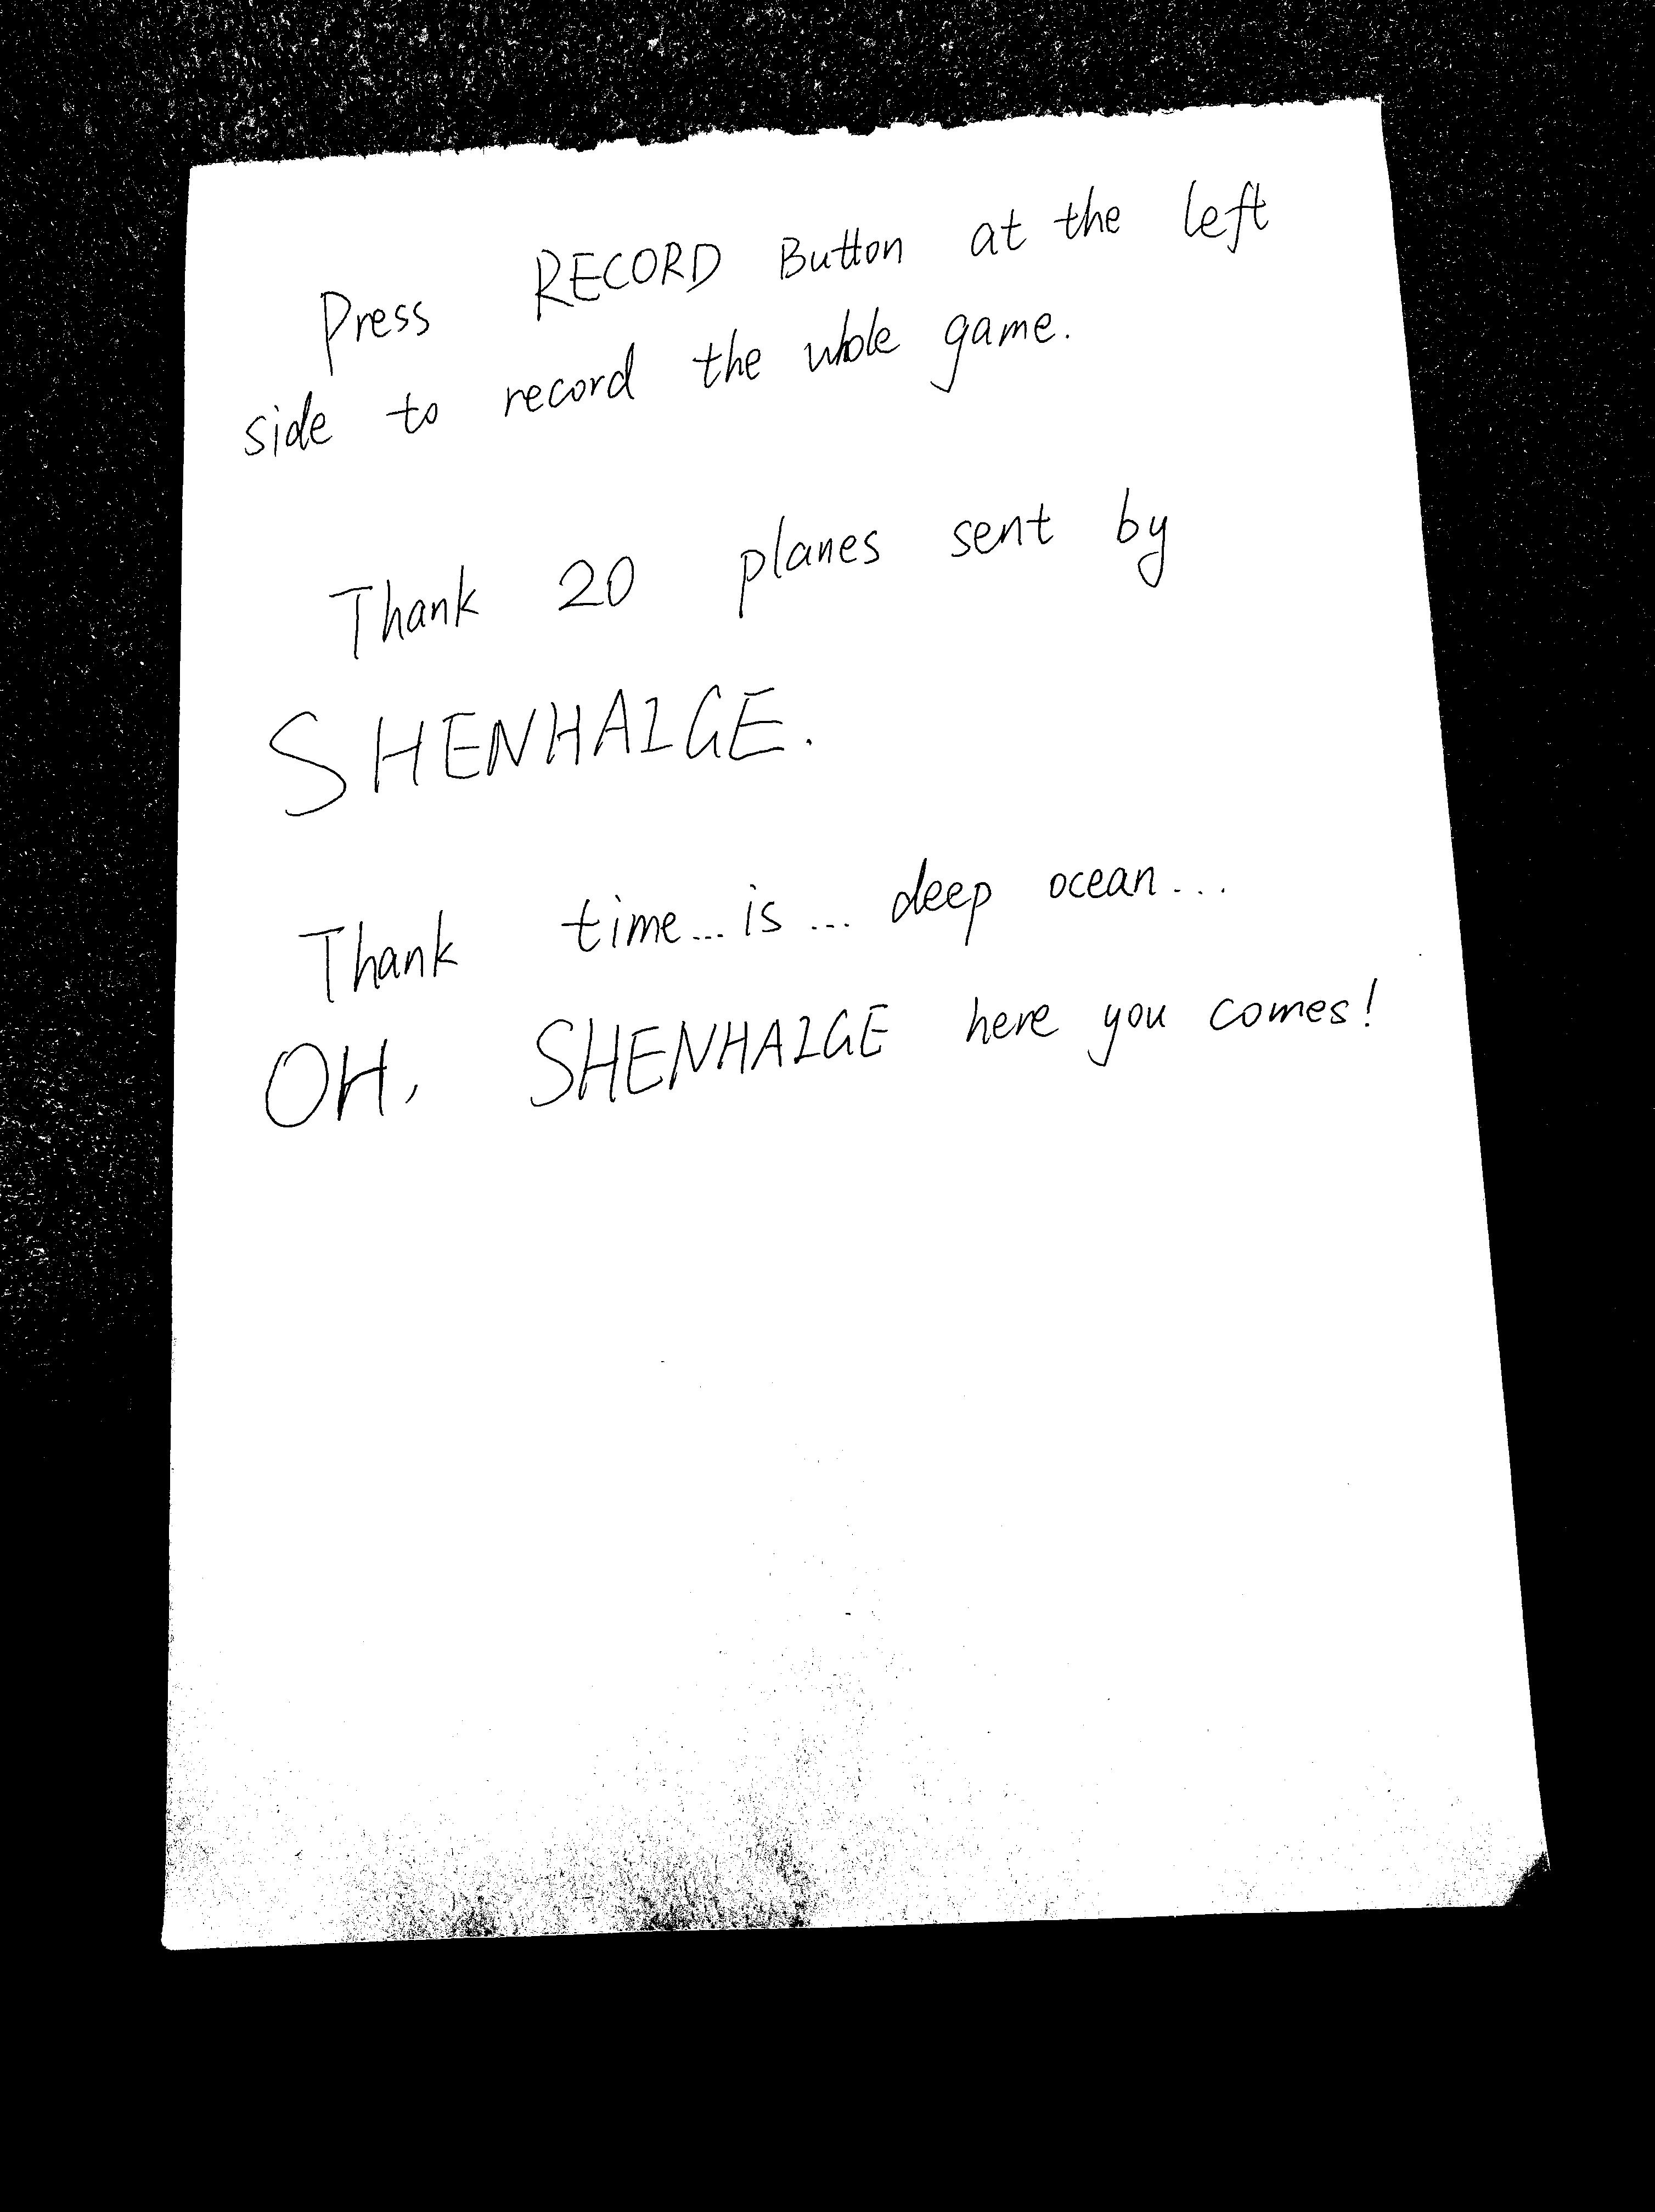 Press RECORD Button at the left
side to record the whole game.
Thank 20 planes sent by
SHENHAIGE.
Thank time... is ... deep ocean...
OH, SHENHAIGE here you comes!